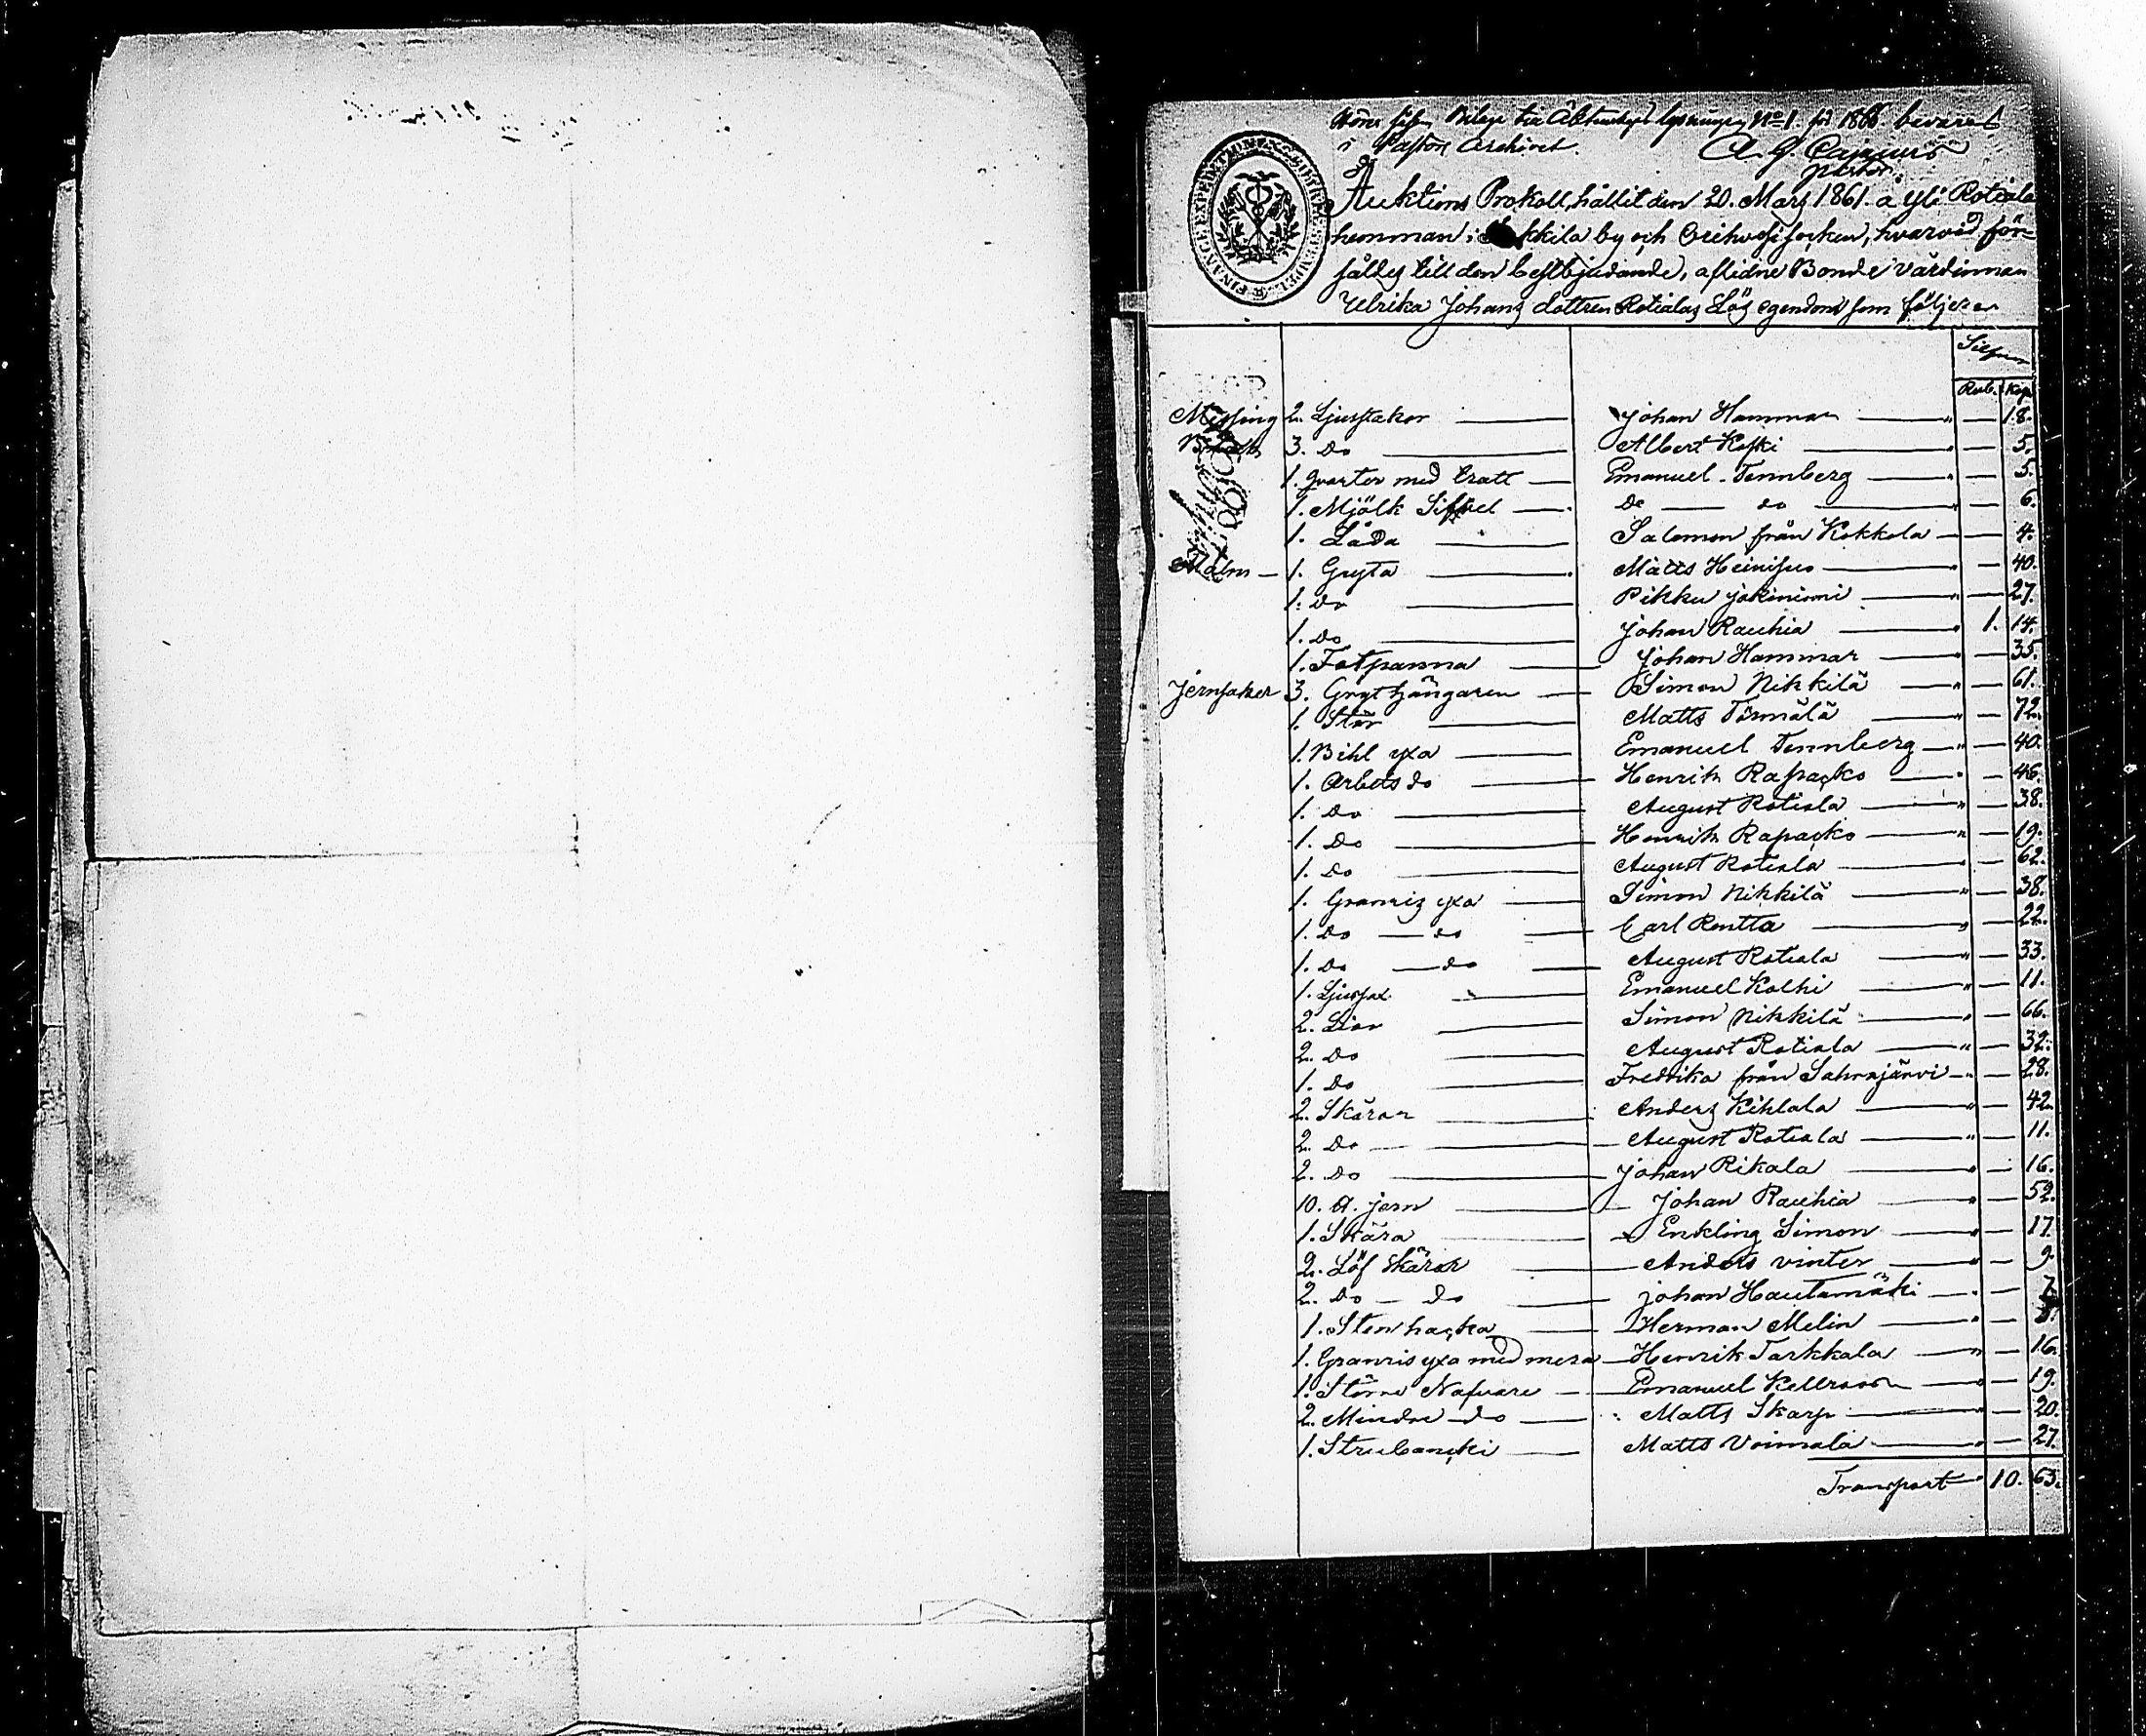 Hörer såsom Bilaga till Äktenskaps lysningen No 1 för 1866 bevaras
i Pastors Archivet. A. G. Cajanus
pastor.
Auktions Prokoll, hållit den 20. Mars 1861. å Yli Rotiala
hemman i kkila by och Orihvesi socken, hvarvid för=
såldes till den bestbjudande, aflidne Bonde värdinnan
Ulrika Johans dottren Rotialas Lös egendom som följer
Silfver
Rub. Kop.
Messing 2. Ljusstakor Johan Hammar " — 18.
Bleck 3. Do Albert Koski " — 5.
1. Qvarter med tratt Emanuel Tennberg " — 5.
1. Mjölk Do — do " — 6.
1. Låda Salomon från Kokkola — 4.
Malm — 1. Gryta Matts Heinisuo " — 40.
1. Do Pikku jokiniemi " — 27.
1. Do Johan Rauhia " 1. 14.
1. Fotpanna Johan Hammar " — 35.
Jernsaker 3. Grythängaren Simon Nikkilä " — 61.
1. Stör Matts Törmälä " — 72.
1. Bihl yxa Emanuel Tennberg " — 40.
1. Arbets do Henrik Rapasko " — 46.
1. Do August Rotiala " — 38.
1. Do Henrik Rapasko " — 19.
1. Do August Rotiala " — 62.
1. Granris yxa Simon Nikkilä " — 38.
1. Do — do Carl Rentta " — 22.
1. Do — do August Rotiala " — 33.
1. Ljussax Emanuel Kolhi " — 11.
2. Liar Simon Nikkilä " — 66.
2. Do August Rotiala " — 32.
1. Do Fredrika från Sahrajärvi " — 28.
2. Skäror Anders Kihlala " — 42.
2. Do August Rotiala " — 11.
2. Do Johan Rikala " — 16.
10. jern Johan Rauhia " — 52.
1. Skära Enkling Simon " — 17.
2. Löf skäror Anders vinter " — 9.
2. Do — Do johan Hautamäki " — 7.
1. Stenhacka Herman Melin " —
1. Granris yxa med mera Henrik Tarkkala " — 16.
1. Större Nafvare Emanuel Kellroos " — 19.
2. Mindre do Matts Skarp " — 20.
1. Matts Voimala " — 27.
Transport 10. 63.